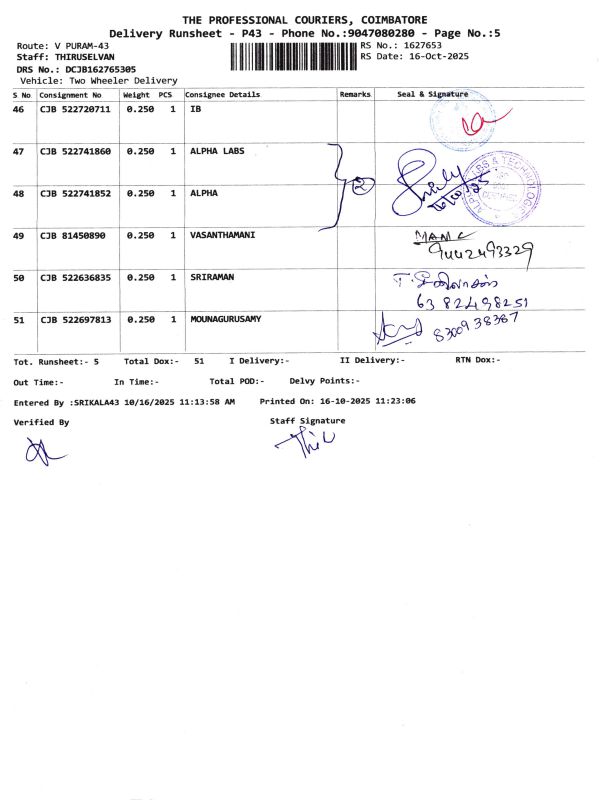 THE PROFESSIONAL COURIERS, COIMBATORE
Delivery Runsheet - P43 - Phone No.:9047080280 - Page No.:5
Route: V PURAM-43 RS No.: 1627653
Staff: THIRUSELVAN RS Date: 16-Oct-2025
DRS No.: DCJB162765305
Vehicle: Two Wheeler Delivery
S No Consignment No Weight PCS Consignee Details Remarks Seal & Signature
46 CJB 522720711 0.250 1 IB
47 CJB 522741860 0.250 1 ALPHA LABS
2
48 CJB 522741852 0.250 1 ALPHA
49 CJB 81450890 0.250 1 VASANTHAMANI
9442493329
50 CJB 522636835 0.250 1 SRIRAMAN
63 82498251
51 CJB 522697813 0.250 1 MOUNAGURUSAMY
8300938387
Tot. Runsheet:- 5 Total Dox:- 51 I Delivery:- II Delivery:- RTN Dox:-
Out Time:- In Time:- Total POD:- Delvy Points:-
Entered By :SRIKALA43 10/16/2025 11:13:58 AM Printed On: 16-10-2025 11:23:06
Verified By Staff Signature